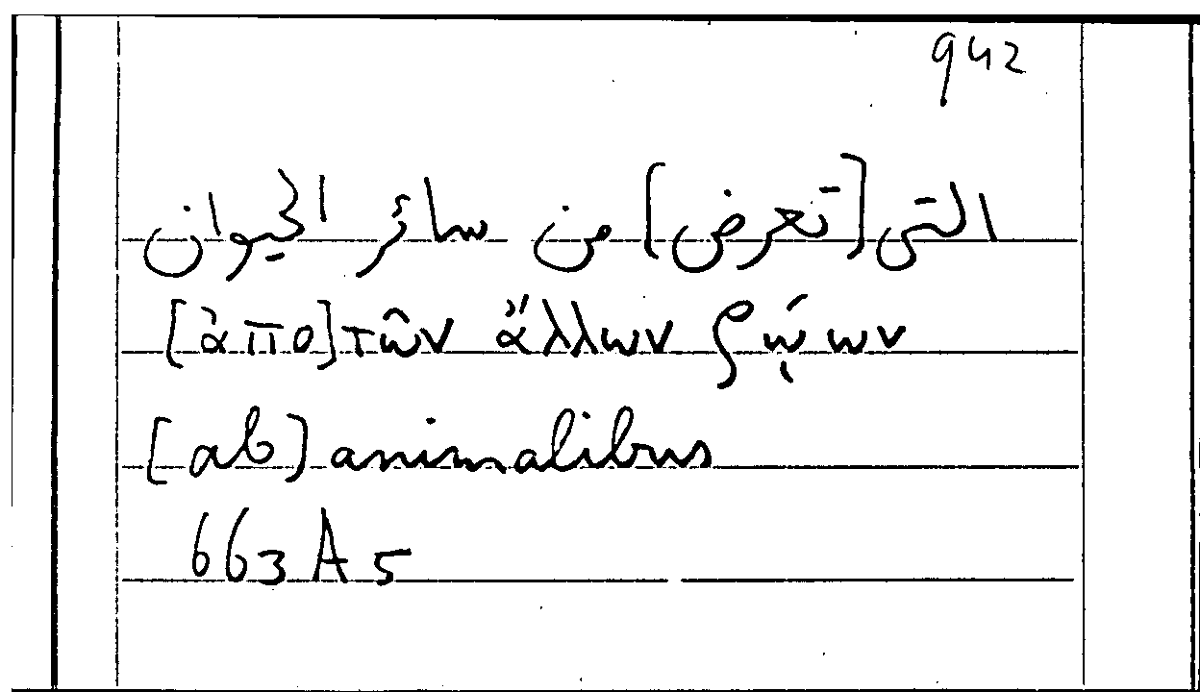 942
التى [تعرض] من سائر الحيوان
[ἀπο] τῶν ἄλλων ζῴων
[ab] animalibus
663 A 5